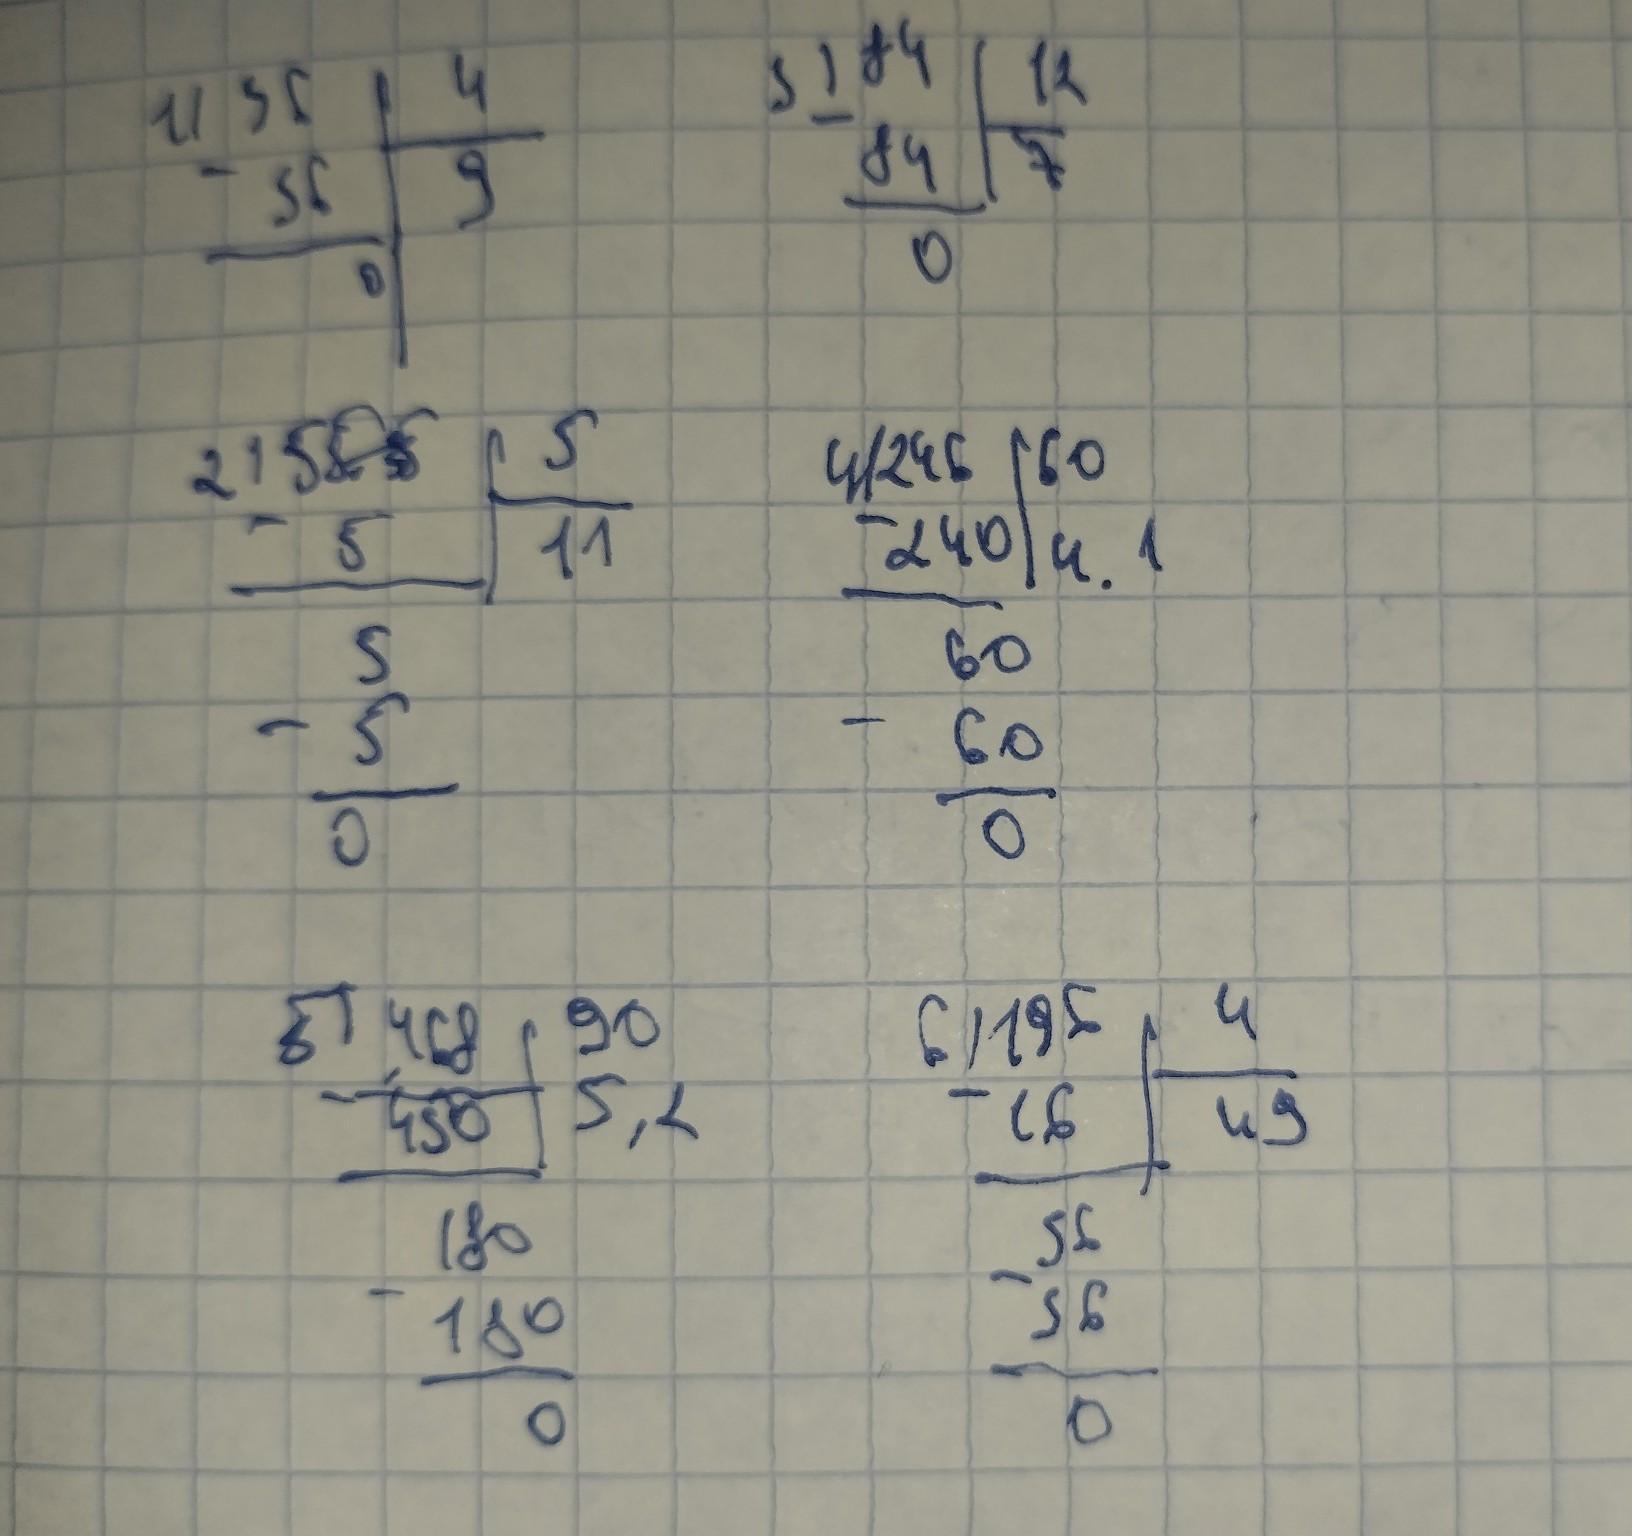 1) 36 | 4
- 36 | 9
0
3) 84 | 12
- 84 | 7
0
2) 55 | 5
- 5 | 11
5
- 5
0
4) 246 | 60
- 240 | 4.1
60
- 60
0
5) 468 | 90
- 450 | 5,2
180
- 180
0
6) 196 | 4
- 16 | 49
36
- 36
0